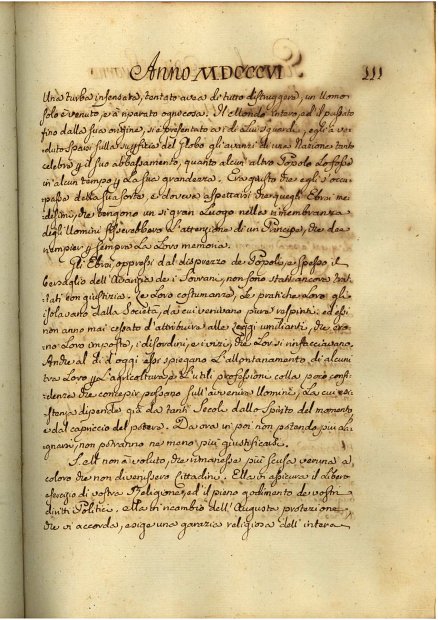 Anno MDCCCVI
111
Una turba insensata, tentato avea di tutto distruggere, un Uomo
solo è venuto, e à riparato ogni cosa. Il Mondo intero, ed il passato
fino dalla sua origine, si è presentato a i di Lui sguardi, egli à ve-
duto sparsi sulla superficie del Globo gli avanzi di una Nazione tanto
celebre pel suo abbassamento, quanto alcun' altro Popolo Lo fosse
in alcun tempo pella sua grandezza. Era giusto che egli s' occu-
passe della sua sorte, e doveva aspettarsi che quegli Ebrei me-
desimi, che tengono un sì gran Luogo nella rimembranza
degli Uomini fisserebbero L'attenzione di un Principe, che dee
riempier per sempre La loro memoria.
Gli Ebrei, oppressi dal disprezzo de Popoli, e spesso il
bersaglio dell' Avarizia de i Sovrani, non sono stati ancora trat-
tati con giustizia. Le Loro costumanze, Le pratiche Loro gli
isolavano dalla Società, da cui venivano pure respinti: ed essi
non anno mai cessato d'attribuire alle Leggi umilianti, che era-
no Loro imposte, i disordini, e i vizi, che Lor si rinfacciavano.
Anche al dì d'oggi essi spiegano L'allontanamento di alcuni
tra Loro per L'agricoltura e L'utili professioni colla poca confi-
denza che concepir possono sull' avvenire Uomini, La cui esi-
stenza dipende già da tanti Secoli dallo Spirito del momento
e dal capriccio del potere. Da ora in poi non potendo più La-
gnarsi, non potranno ne meno più giustificarsi.
S. M. non à voluto, che rimanesse più scusa veruna a
coloro che non divenissero Cittadini. Ella vi assicura il Libero
esercizio di vostra Religione, ed il pieno godimento de vostri
diritti Politici. Ma in ricambio dell' Augusta protezione
che vi accorda, esige una garazia religiosa dell' intera